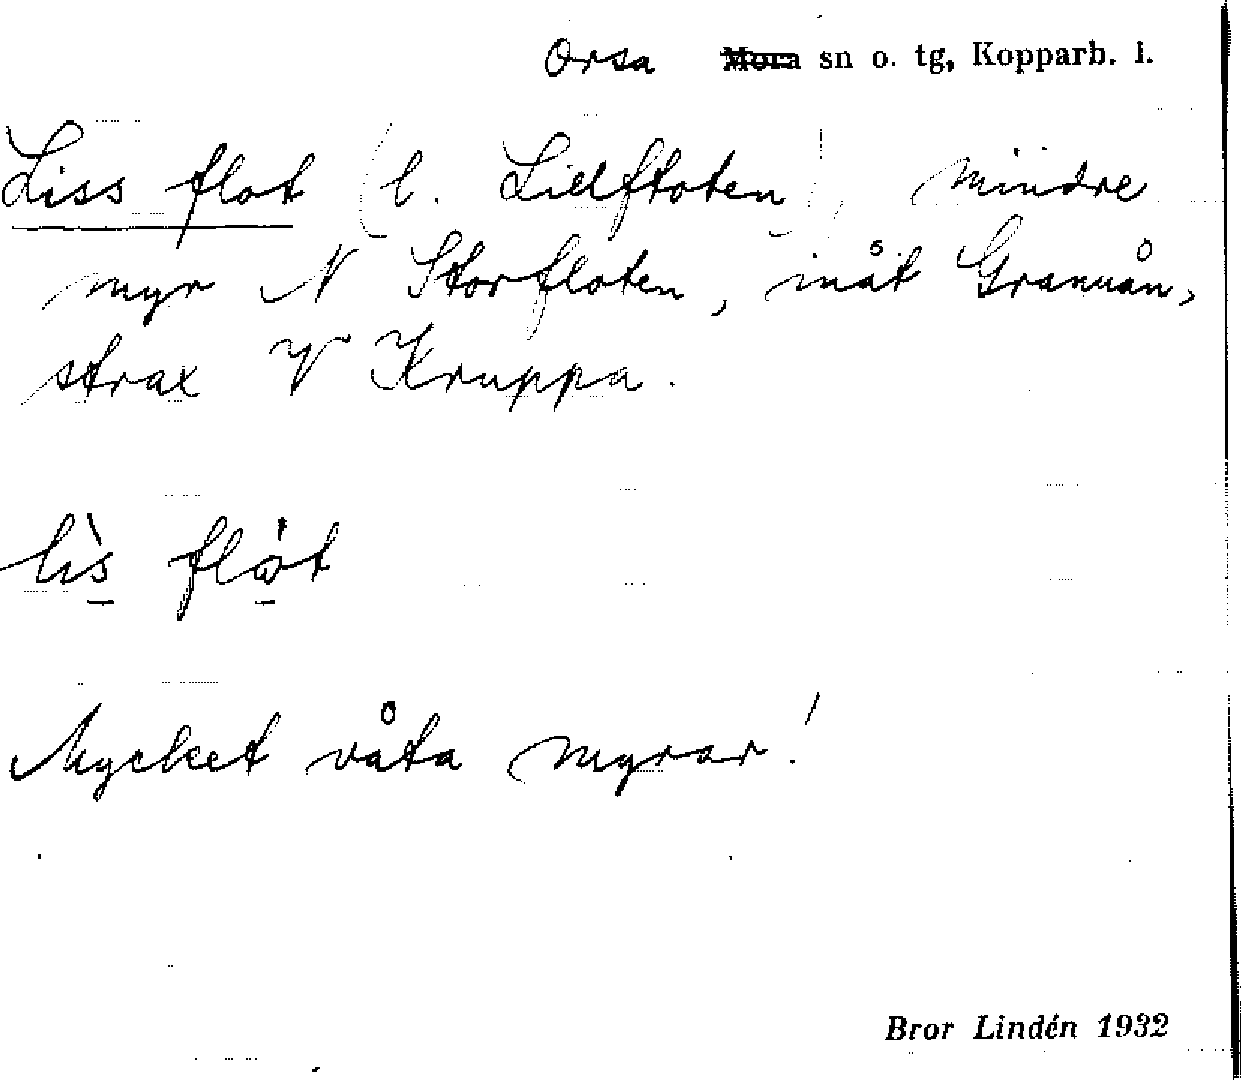 Orsa Mora sn o. tg, Kopparb. l.
Liss flot (l. Lillfloten), mindre
myr N Storfloten, inåt Granuån,
strax V Kruppa.
lìs flòt
Mycket våta myrar!
Bror Lindén 1932